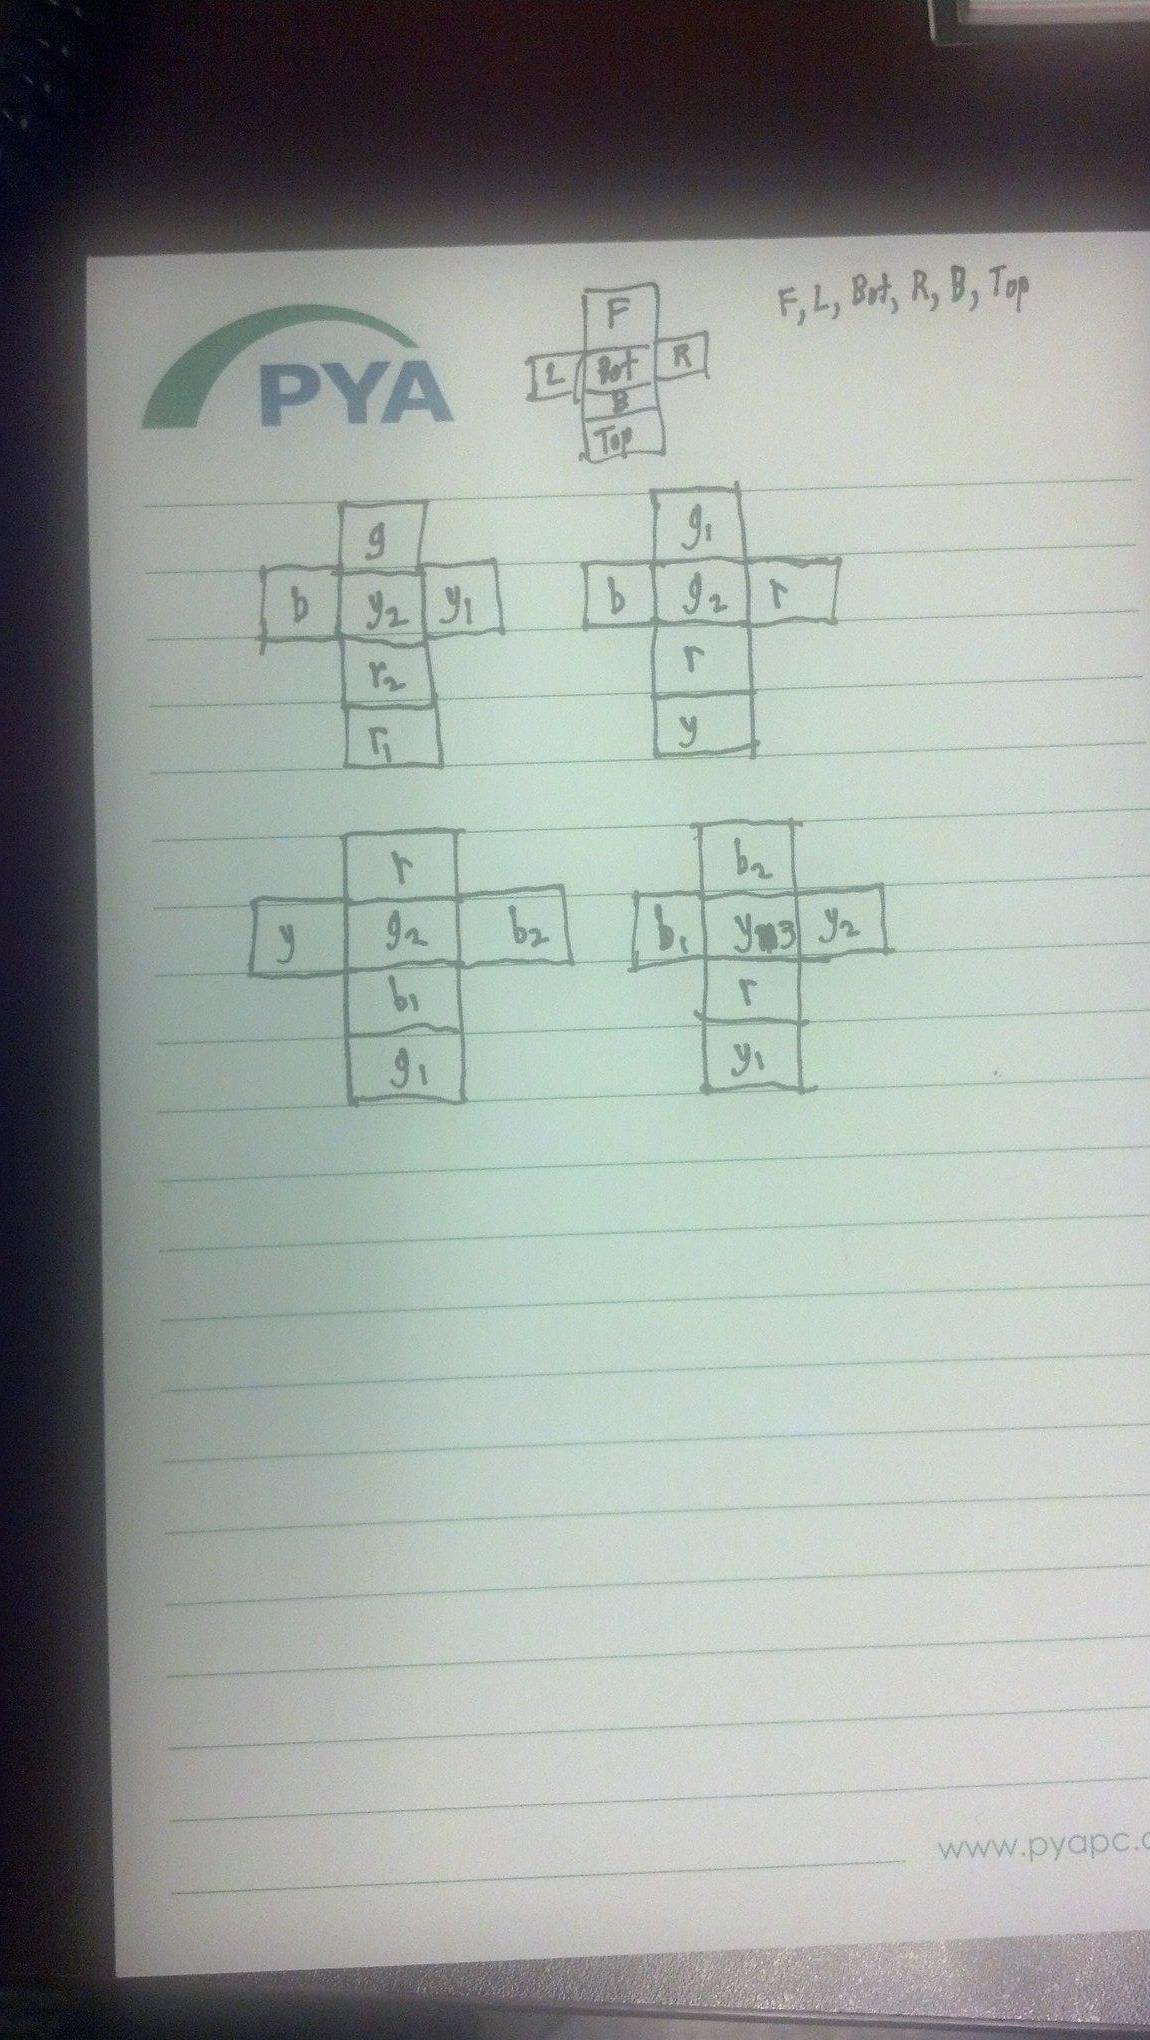 PYA
F
F, L, Bot, R, B, Top
L Bot R
B
Top
g
b y2 y1
r2
r1
g1
b g2 r
r
y
r
y g2 b2
b1
g1
b2
b1 y3 y2
r
y1
www.pyapc.c